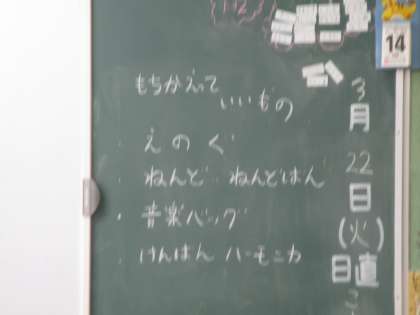 もちかえって
いいもの
えのぐ
ねんど ねんどばん
音楽バッグ
けんばんハーモニカ
3
月
22
日
(火)
日直
14